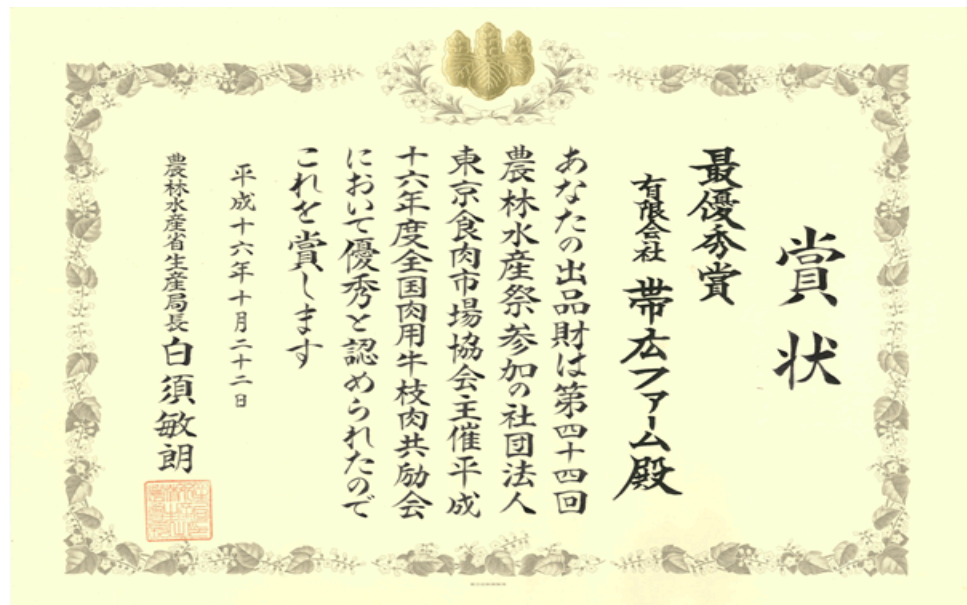 賞状
最優秀賞
有限会社 帯広ファーム殿
あなたの出品財は第四十四回
農林水産祭参加の社団法人
東京食肉市場協会主催平成
十六年度全国肉用牛枝肉共励会
において優秀と認められたので
これを賞します
平成十六年十月二十二日
農林水産省生産局長 白須敏朗